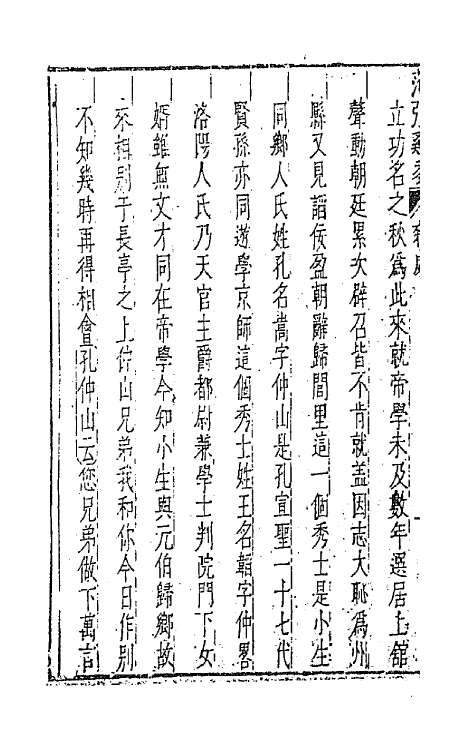 范張雞黍 雜劇
立功名之秋為此來就帝學未及數年選居上舘
聲動朝廷累次辟召皆不肯就盖因志大恥為州
縣又見謟佞盈朝辭歸閭里這一個秀士是小生
同鄉人氏姓孔名嵩字仲山是孔宣聖一十七代
賢孫亦同遊學京師這個秀士姓王名韜字仲畧
洛陽人氏乃天官主爵都尉兼學士判院門下女
婿雖無文才同在帝學今知小生與元伯歸鄉故
來相別于長亭之上仲山兄弟我和你今日作别
不知幾時再得相會孔仲山云您兄弟做下萬言